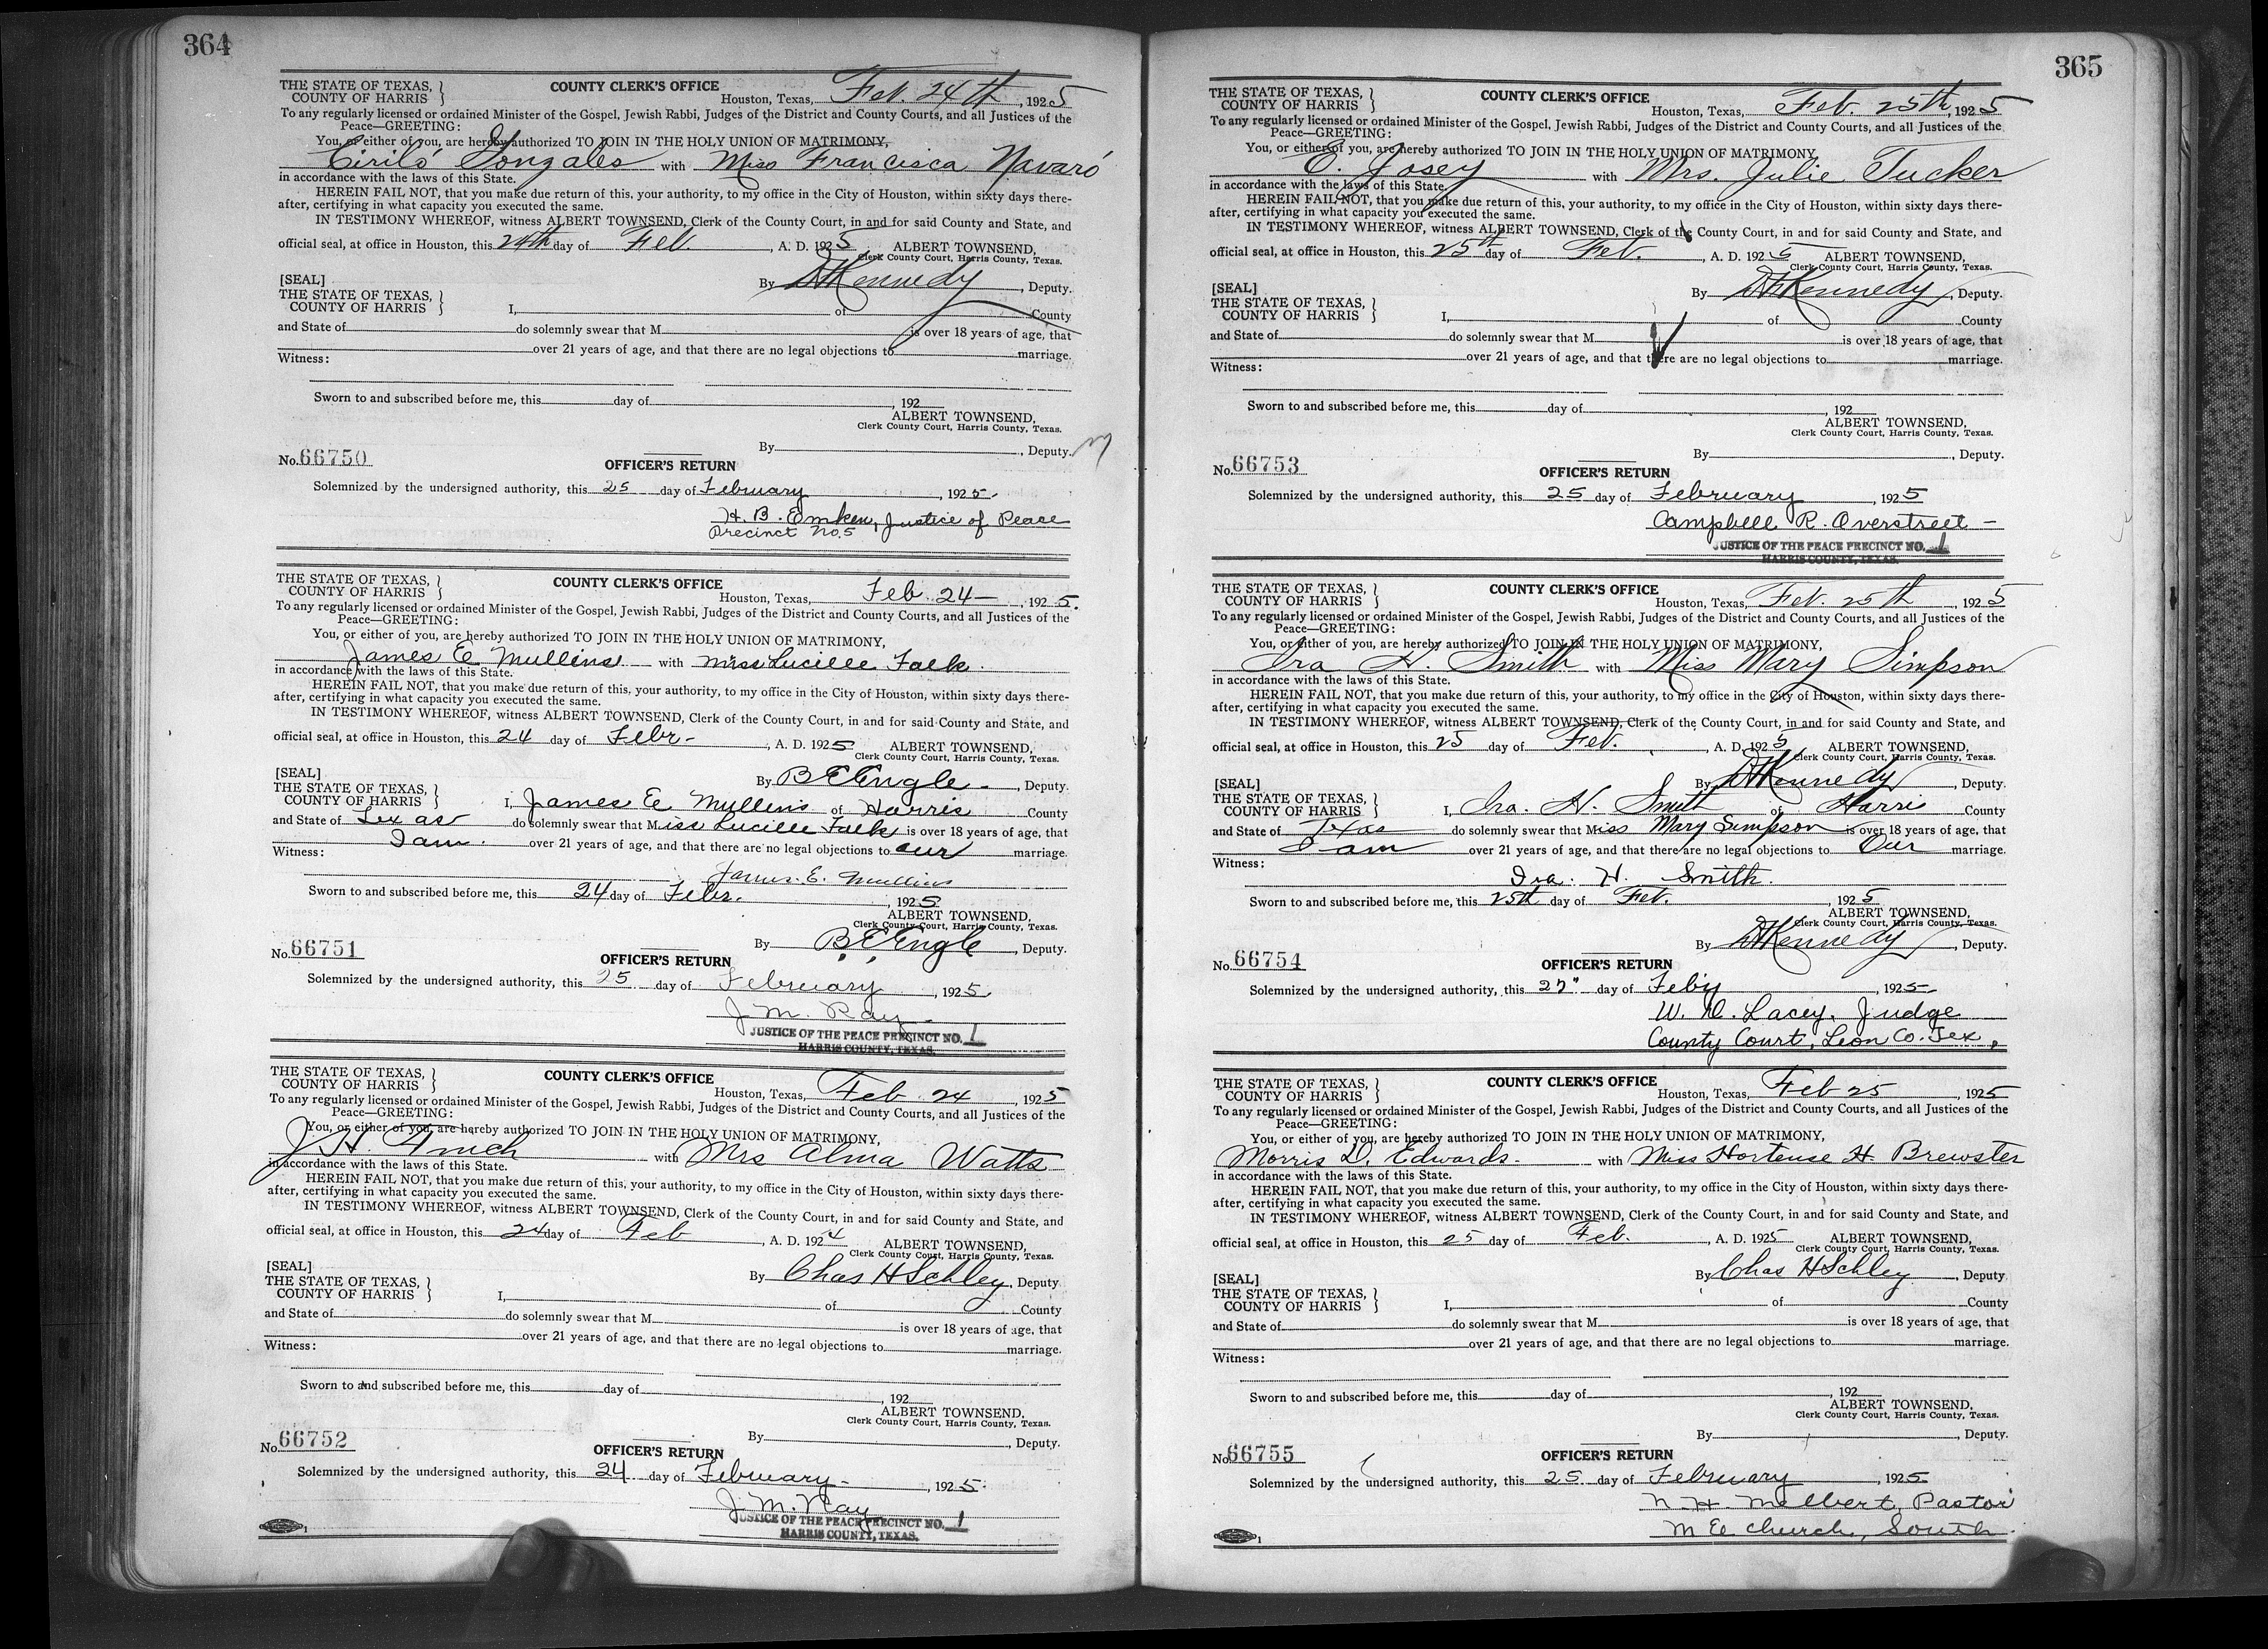 364
THE STATE OF TEXAS, COUNTY OF HARRIS
COUNTY CLERK'S OFFICE
Houston, Texas, Feb. 24th, 1925
To any regularly licensed or ordained Minister of the Gospel, Jewish Rabbi, Judges of the District and County Courts, and all Justices of the
Peace—GREETING:
You, or either of you, are hereby authorized TO JOIN IN THE HOLY UNION OF MATRIMONY,
Cirilo Gonzales with Miss Francisca Navaró
in accordance with the laws of this State.
HEREIN FAIL NOT, that you make due return of this, your authority, to my office in the City of Houston, within sixty days there-
after, certifying in what capacity you executed the same.
IN TESTIMONY WHEREOF, witness ALBERT TOWNSEND, Clerk of the County Court, in and for said County and State, and
official seal, at office in Houston, this 24th day of Feb. , A. D. 1925 ALBERT TOWNSEND,
Clerk County Court, Harris County, Texas.
[SEAL] By Kennedy, Deputy.
THE STATE OF TEXAS, COUNTY OF HARRIS I, of County
and State of do solemnly swear that M is over 18 years of age, that
over 21 years of age, and that there are no legal objections to marriage.
Witness:
Sworn to and subscribed before me, this day of , 192
ALBERT TOWNSEND,
Clerk County Court, Harris County, Texas.
By , Deputy.
No. 66750 OFFICER'S RETURN
Solemnized by the undersigned authority, this 25 day of February, 1925.
H. B. Emken, Justice of Peace
Precinct No. 5
THE STATE OF TEXAS, COUNTY OF HARRIS
COUNTY CLERK'S OFFICE
Houston, Texas, Feb. 24—, 1925.
To any regularly licensed or ordained Minister of the Gospel, Jewish Rabbi, Judges of the District and County Courts, and all Justices of the
Peace—GREETING:
You, or either of you, are hereby authorized TO JOIN IN THE HOLY UNION OF MATRIMONY,
James E Mullins with Miss Lucille Falk.
in accordance with the laws of this State.
HEREIN FAIL NOT, that you make due return of this, your authority, to my office in the City of Houston, within sixty days there-
after, certifying in what capacity you executed the same.
IN TESTIMONY WHEREOF, witness ALBERT TOWNSEND, Clerk of the County Court, in and for said County and State, and
official seal, at office in Houston, this 24 day of Febr- , A. D. 1925 ALBERT TOWNSEND,
Clerk County Court, Harris County, Texas.
[SEAL] By B E Engle, Deputy.
THE STATE OF TEXAS, COUNTY OF HARRIS I, James E Mullins of Harris County
and State of Texas do solemnly swear that Miss Lucille Falk is over 18 years of age, that
I am. over 21 years of age, and that there are no legal objections to our marriage.
Witness:
James. E. Mullins
Sworn to and subscribed before me, this 24 day of Febr. , 1925
ALBERT TOWNSEND,
Clerk County Court, Harris County, Texas.
By B E Engle, Deputy.
No. 66751 OFFICER'S RETURN
Solemnized by the undersigned authority, this 25 day of February, 1925
J. M. Ray
JUSTICE OF THE PEACE PRECINCT NO. 1
HARRIS COUNTY, TEXAS.
THE STATE OF TEXAS, COUNTY OF HARRIS
COUNTY CLERK'S OFFICE
Houston, Texas, Feb 24, 1925
To any regularly licensed or ordained Minister of the Gospel, Jewish Rabbi, Judges of the District and County Courts, and all Justices of the
Peace—GREETING:
You, or either of you, are hereby authorized TO JOIN IN THE HOLY UNION OF MATRIMONY,
J. H. Finch with Mrs Alma Watts
in accordance with the laws of this State.
HEREIN FAIL NOT, that you make due return of this, your authority, to my office in the City of Houston, within sixty days there-
after, certifying in what capacity you executed the same.
IN TESTIMONY WHEREOF, witness ALBERT TOWNSEND, Clerk of the County Court, in and for said County and State, and
official seal, at office in Houston, this 24 day of Feb , A. D. 1924 ALBERT TOWNSEND,
Clerk County Court, Harris County, Texas.
[SEAL] By Chas H Schley, Deputy
THE STATE OF TEXAS, COUNTY OF HARRIS I, of County
and State of do solemnly swear that M is over 18 years of age, that
over 21 years of age, and that there are no legal objections to marriage.
Witness:
Sworn to and subscribed before me, this day of , 192
ALBERT TOWNSEND,
Clerk County Court, Harris County, Texas.
By , Deputy.
No. 66752 OFFICER'S RETURN
Solemnized by the undersigned authority, this 24 day of February, 1925.
J. M. Ray
JUSTICE OF THE PEACE PRECINCT NO. 1
HARRIS COUNTY, TEXAS.
365
THE STATE OF TEXAS, COUNTY OF HARRIS
COUNTY CLERK'S OFFICE
Houston, Texas, Feb. 25th, 1925
To any regularly licensed or ordained Minister of the Gospel, Jewish Rabbi, Judges of the District and County Courts, and all Justices of the
Peace—GREETING:
You, or either of you, are hereby authorized TO JOIN IN THE HOLY UNION OF MATRIMONY,
E. Josey with Mrs. Julie Tucker
in accordance with the laws of this State.
HEREIN FAIL NOT, that you make due return of this, your authority, to my office in the City of Houston, within sixty days there-
after, certifying in what capacity you executed the same.
IN TESTIMONY WHEREOF, witness ALBERT TOWNSEND, Clerk of the County Court, in and for said County and State, and
official seal, at office in Houston, this 25th day of Feb. , A. D. 1925 ALBERT TOWNSEND,
Clerk County Court, Harris County, Texas.
[SEAL] By Kennedy, Deputy.
THE STATE OF TEXAS, COUNTY OF HARRIS I, of County
and State of do solemnly swear that M is over 18 years of age, that
over 21 years of age, and that there are no legal objections to marriage.
Witness:
Sworn to and subscribed before me, this day of , 192
ALBERT TOWNSEND,
Clerk County Court, Harris County, Texas.
By , Deputy.
No. 66753 OFFICER'S RETURN
Solemnized by the undersigned authority, this 25 day of February, 1925
Campbell R. Overstreet —
JUSTICE OF THE PEACE PRECINCT NO. 1
HARRIS COUNTY, TEXAS.
THE STATE OF TEXAS, COUNTY OF HARRIS
COUNTY CLERK'S OFFICE
Houston, Texas, Feb. 25th, 1925
To any regularly licensed or ordained Minister of the Gospel, Jewish Rabbi, Judges of the District and County Courts, and all Justices of the
Peace—GREETING:
You, or either of you, are hereby authorized TO JOIN IN THE HOLY UNION OF MATRIMONY,
Ira H. Smith with Miss Mary Simpson
in accordance with the laws of this State.
HEREIN FAIL NOT, that you make due return of this, your authority, to my office in the City of Houston, within sixty days there-
after, certifying in what capacity you executed the same.
IN TESTIMONY WHEREOF, witness ALBERT TOWNSEND, Clerk of the County Court, in and for said County and State, and
official seal, at office in Houston, this 25 day of Feb. , A. D. 1925 ALBERT TOWNSEND,
Clerk County Court, Harris County, Texas.
[SEAL] By Kennedy, Deputy.
THE STATE OF TEXAS, COUNTY OF HARRIS I, Ira. H. Smith of Harris County
and State of Texas do solemnly swear that Miss Mary Simpson is over 18 years of age, that
I am over 21 years of age, and that there are no legal objections to Our marriage.
Witness:
Ira. H. Smith.
Sworn to and subscribed before me, this 25th day of Feb. , 1925
ALBERT TOWNSEND,
Clerk County Court, Harris County, Texas.
By Kennedy, Deputy.
No. 66754 OFFICER'S RETURN
Solemnized by the undersigned authority, this 27" day of Feby , 1925
W. D. Lacey, Judge
County Court, Leon Co. Tex,
THE STATE OF TEXAS, COUNTY OF HARRIS
COUNTY CLERK'S OFFICE
Houston, Texas, Feb 25 1925
To any regularly licensed or ordained Minister of the Gospel, Jewish Rabbi, Judges of the District and County Courts, and all Justices of the
Peace—GREETING:
You, or either of you, are hereby authorized TO JOIN IN THE HOLY UNION OF MATRIMONY,
Morris D. Edwards. with Miss Hortense H. Brewster
in accordance with the laws of this State.
HEREIN FAIL NOT, that you make due return of this, your authority, to my office in the City of Houston, within sixty days there-
after, certifying in what capacity you executed the same.
IN TESTIMONY WHEREOF, witness ALBERT TOWNSEND, Clerk of the County Court, in and for said County and State, and
official seal, at office in Houston, this 25 day of Feb. , A. D. 1925 ALBERT TOWNSEND,
Clerk County Court, Harris County, Texas.
[SEAL] By Chas H Schley, Deputy
THE STATE OF TEXAS, COUNTY OF HARRIS I, of County
and State of do solemnly swear that M is over 18 years of age, that
over 21 years of age, and that there are no legal objections to marriage.
Witness:
Sworn to and subscribed before me, this day of , 192
ALBERT TOWNSEND,
Clerk County Court, Harris County, Texas.
By , Deputy.
No. 66755 OFFICER'S RETURN
Solemnized by the undersigned authority, this 25 day of February, 1925
N. H. Melbert, Pastor
M E church, South.